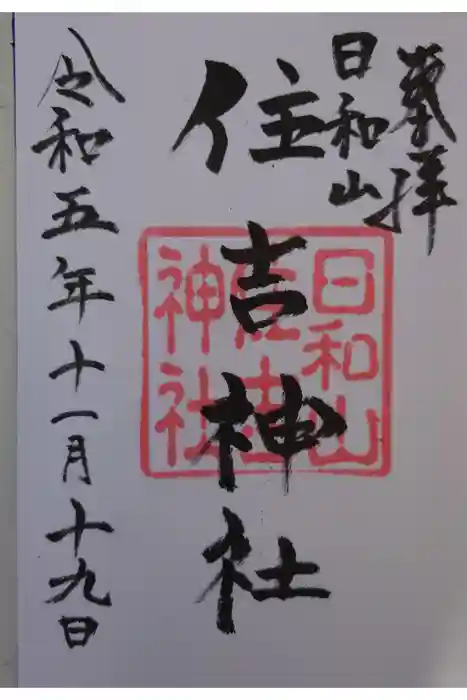 奉拝
日和山
住吉神社
令和五年十一月十九日
日和山
住吉
神社